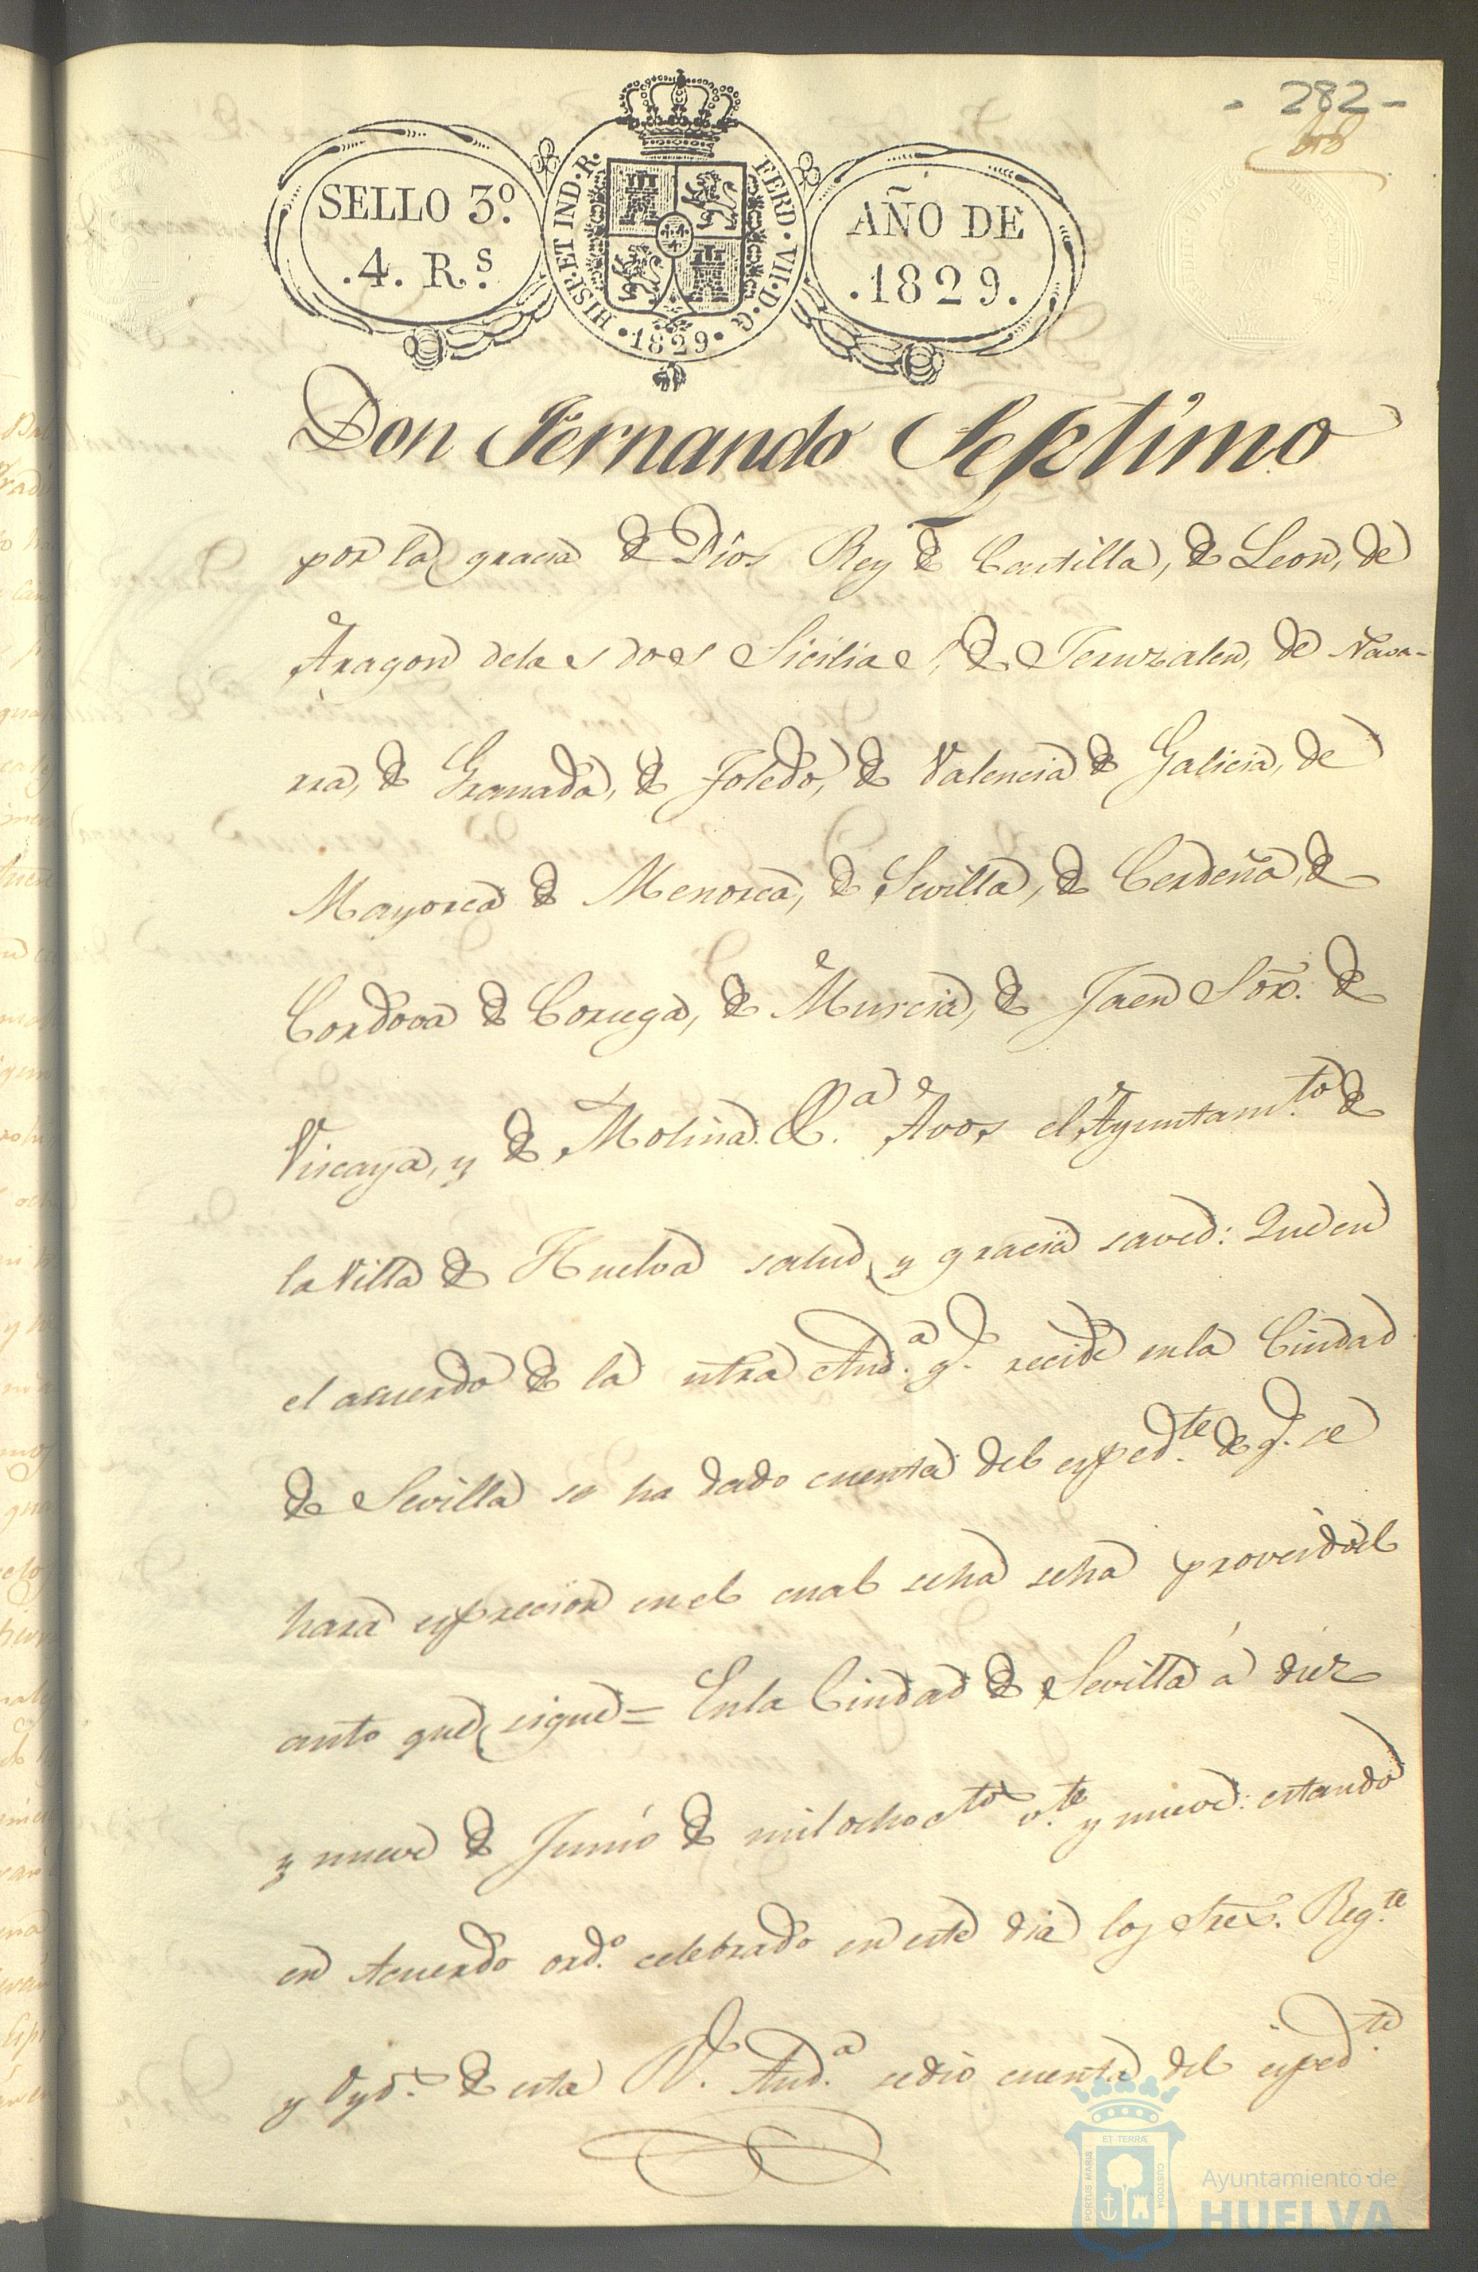 - 282 -
SELLO 3º.
.4. R.s
HISP. ET IND. R.
FERD. VII. D. G.
• 1829 •
AÑO DE
.1829.
Don Fernando Septimo
por la gracia de Dios Rey de Castilla, de Leon, de
Aragon delas dos Sicilias, de Jeruzalen, de Nava-
rra, de Granada, de Toledo, de Valencia de Galicia, de
Mayorca de Menorca, de Sevilla, de Cerdeña, de
Cordova de Corcega, de Murcia, de Jaen Sor. de
Viscaya, y de Molina. &.a Avos el Ayuntam.to de
la Villa de Huelva salud y gracia saved: Que en
el acuerdo de la ntra Aud.a q.e recide en la Ciudad
de Sevilla se ha dado cuenta del exped.te de q.e se
hara exprecion en el cual seha seha proveidoel
auto que sigue = En la Ciudad de Sevilla á diez
y nueve de Junio de mil ochoc.tos v.te y nueve: estando
en Acuerdo ord.o celebrado en este dia los Sres. Reg.te
y Oyd.s de esta R.l Aud.a sedio cuenta del exped.te
PORTUS MARIS
ET TERRÆ
CUSTODIA
Ayuntamiento de
HUELVA